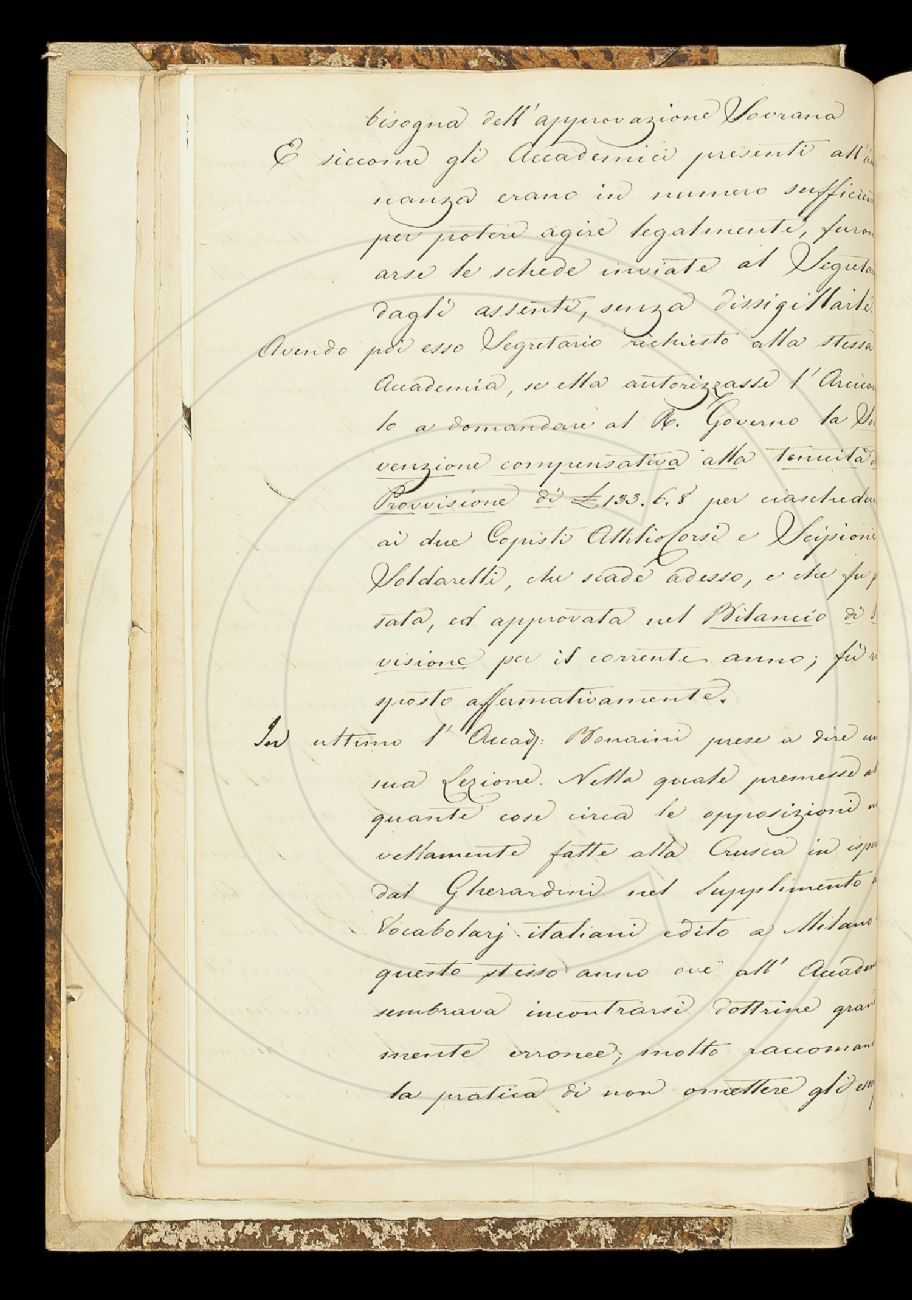 bisogna dell'approvazione Sovrana
E siccome gli Accademici presenti all'
nanza erano in numero sufficien
per potere agire legalmente, furon
arse le schede inviate al Segreta
dagli assenti, senza dissigillarle.
Avendo poi esso Segretario richiesto alla stessa
Accademia, se ella autorizzasse l'Arcicon
lo a domandare al R. Governo la
venzione compensativa alla tenuità
Provvisione di £ 133.6.8 per ciaschedu
ai due Copisti Attilio Corsi e Scipione
Soldarelli, che scade adesso, e che fu
sata, ed approvata nel Bilancio di
visione per il corrente anno; fù
sposto affermativamente.
In ultimo l'Accad: Bonaini prese a dire
sua Lezione. Nella quale premesse al
quante cose circa le opposizioni
vellamente fatte alla Crusca in ispe
dal Gherardini nel Supplimento
Vocabolarj italiani edito a Milano
questo stesso anno ove all' Accadem
sembrava incontrarsi dottrine gran
mente erronee; molto raccoman
la pratica di non omettere gli